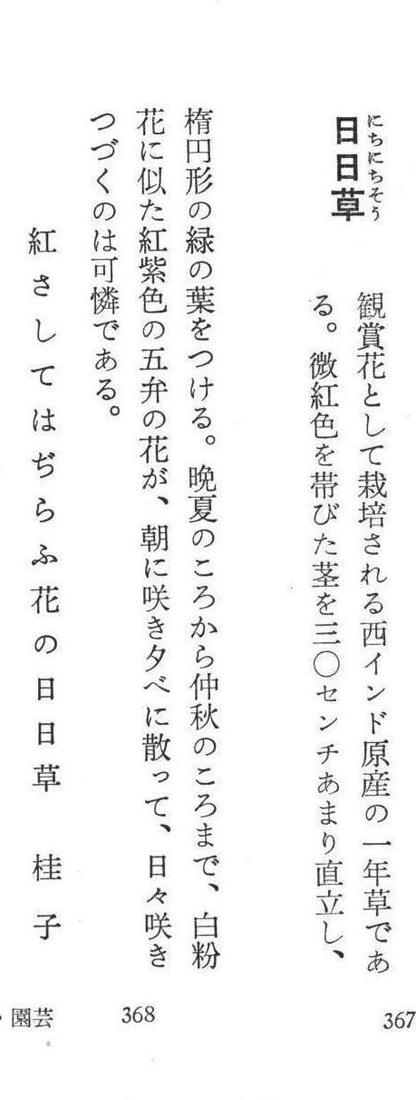 にちにちそう
日日草
観賞花として栽培される西インド原産の一年草であ
る。微紅色を帯びた茎を三〇センチあまり直立し、
楕円形の緑の葉をつける。晩夏のころから仲秋のころまで、白粉
花に似た紅紫色の五弁の花が、朝に咲き夕べに散って、日々咲き
つづくのは可憐である。
紅さしてはぢらふ花の日日草 桂子
367
368
・園芸